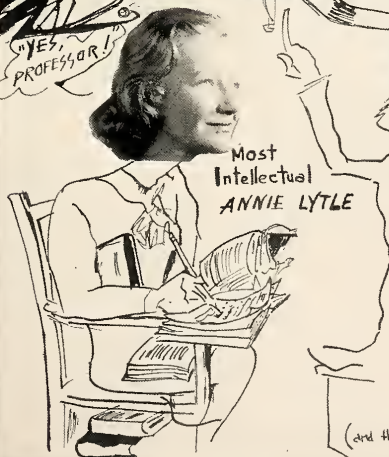 "YES,
PROFESSOR!"
Most
Intellectual
ANNIE LYTLE
(and